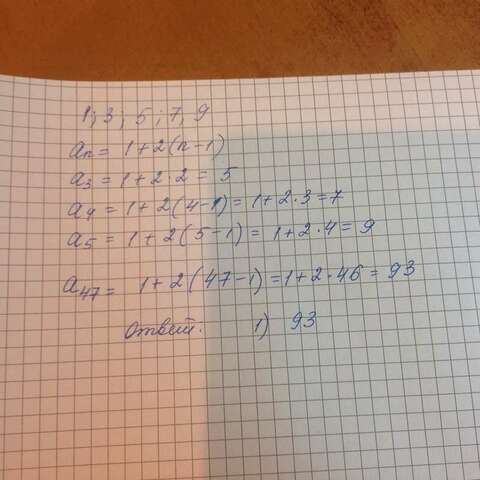 1; 3; 5; 7, 9
aₙ = 1+2(n-1)
a₃ = 1+2·2 = 5
a₄ = 1+2(4-1) = 1+2·3=7
a₅ = 1+2(5-1) = 1+2·4= 9
a₄₇ = 1+2(47-1)=1+2·46 = 93
Ответ. 1) 93